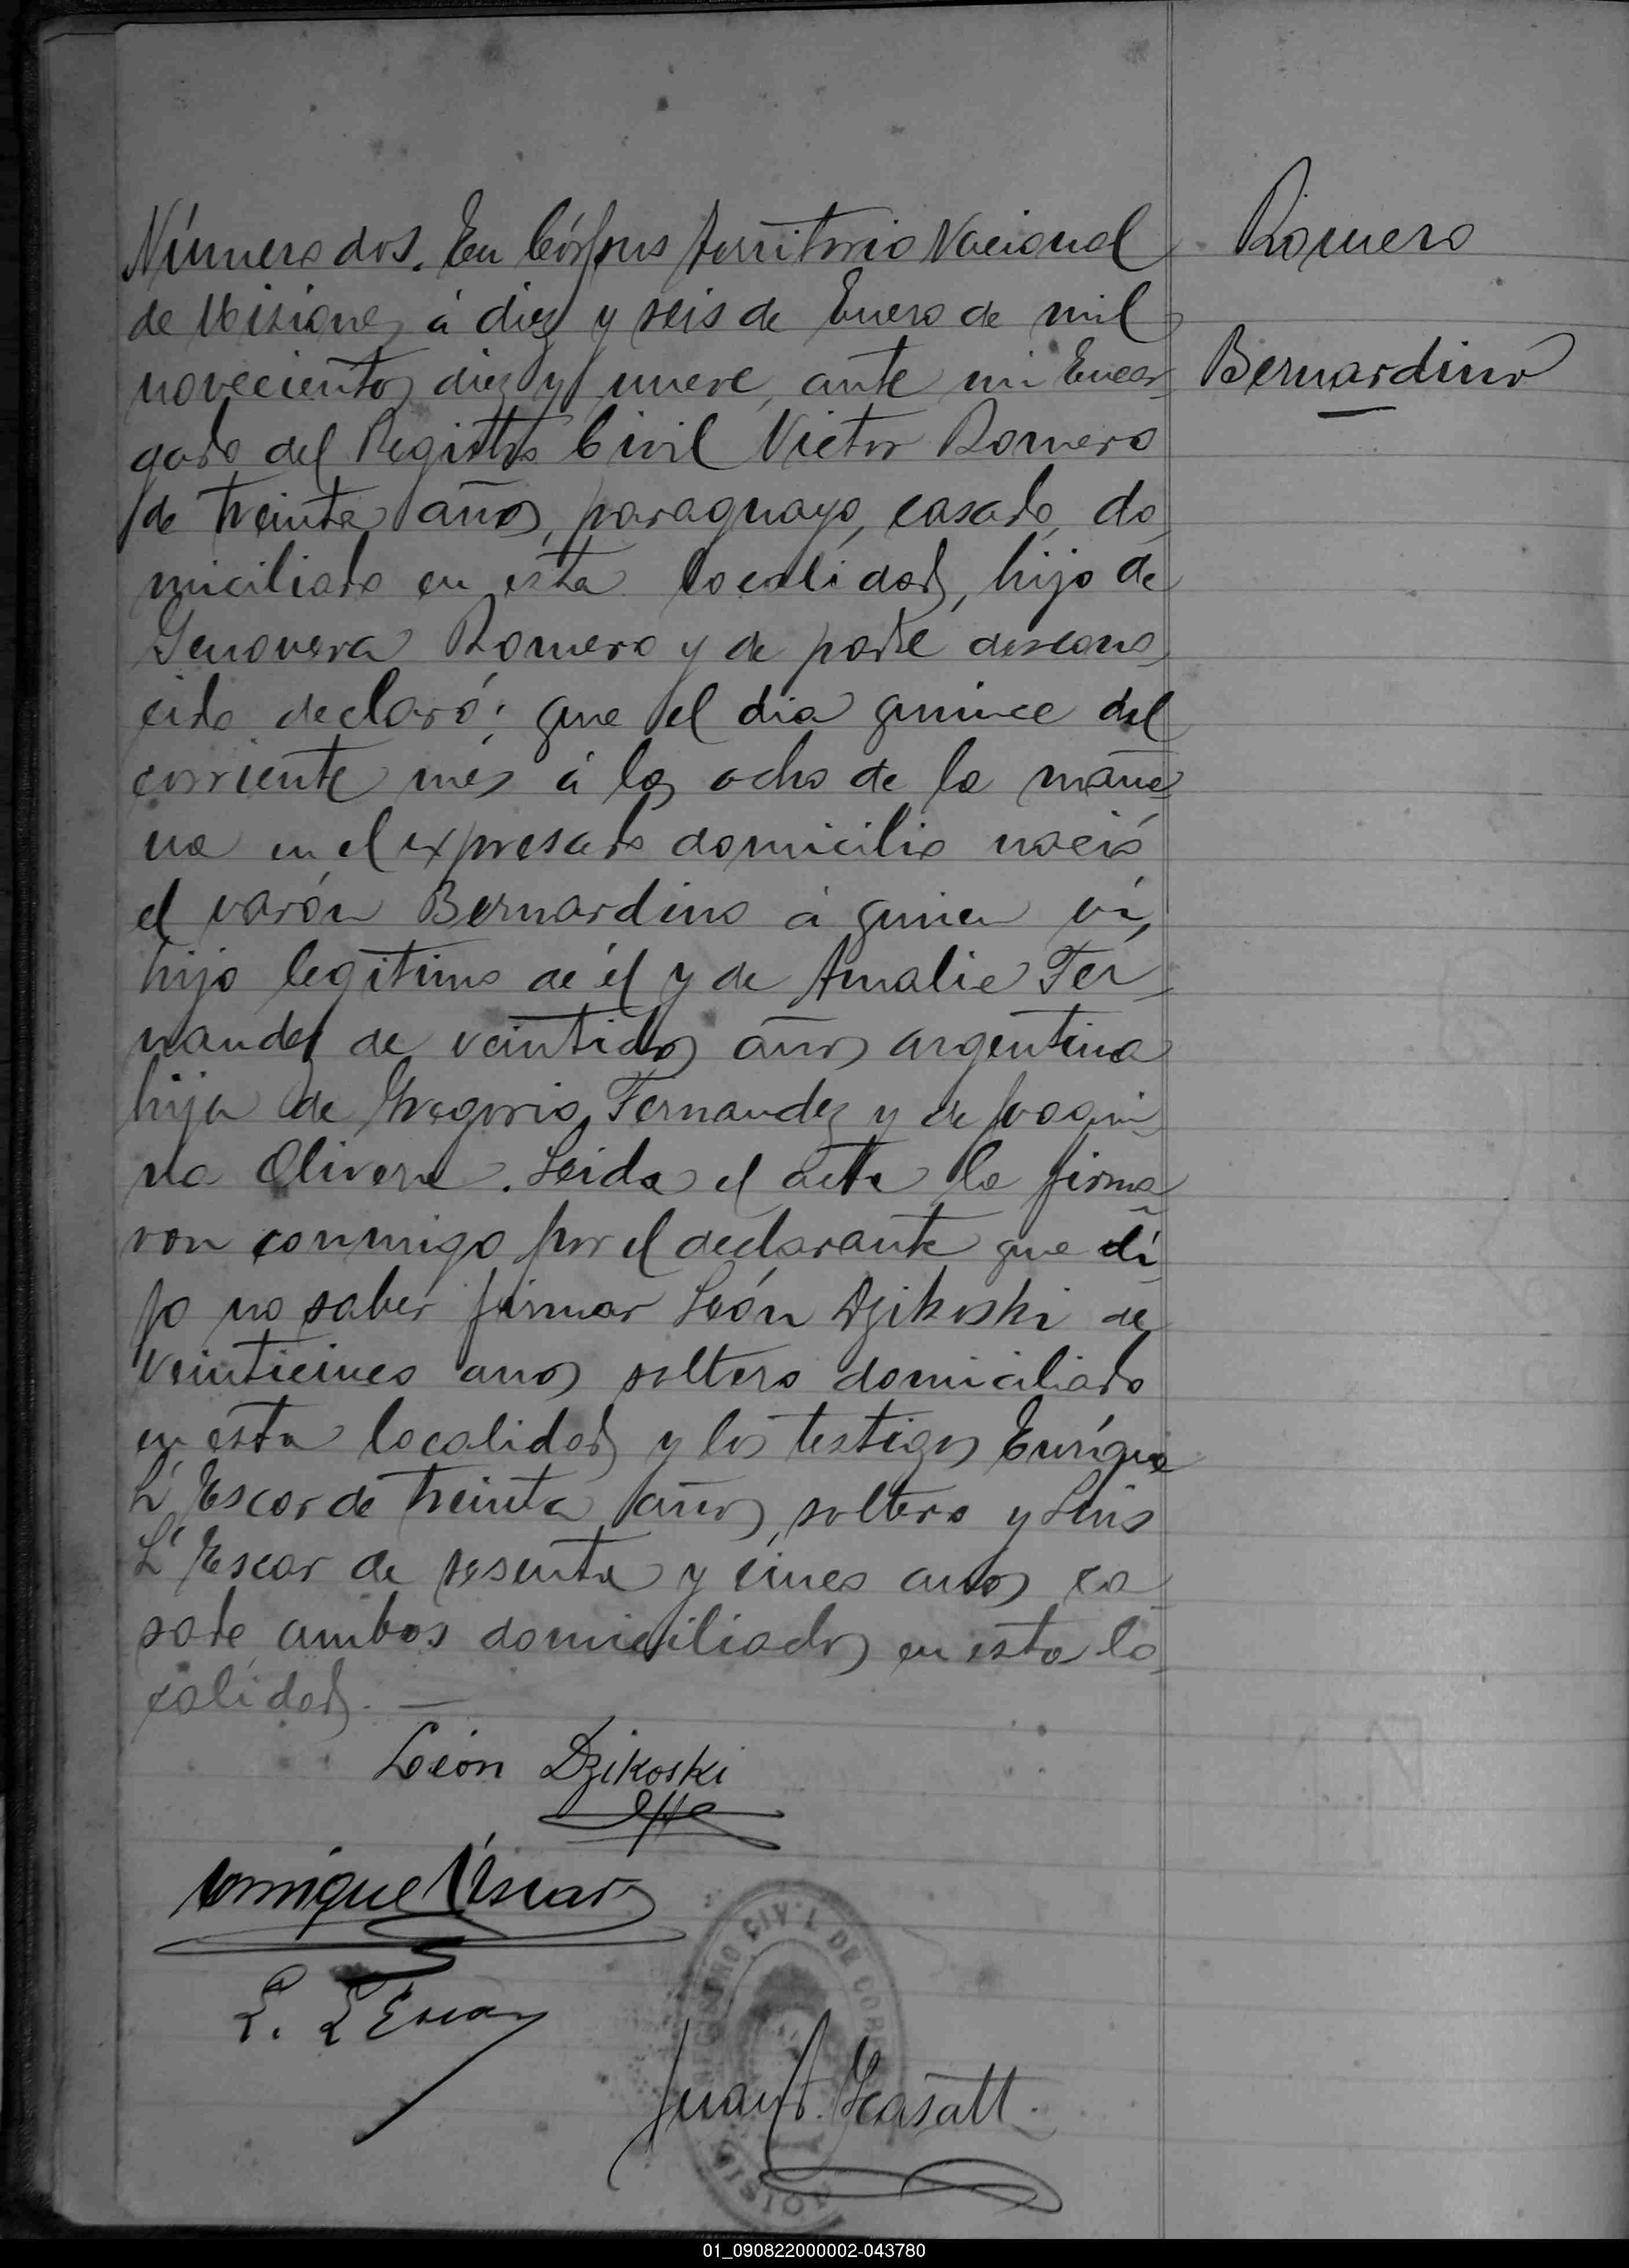 Número dos. En Córpus Territorio Nacional
de Misiones, á diez y seis de Enero de mil
novecientos diez y nueve, ante mi Encar-
gado del Registro Civil Victor Romero
de treinta años, paraguayo, casado, do-
miciliado en esta localidad, hijo de
Genoveva Romero y de padre descono-
cido declaró; que el dia quince del
corriente més á las ocho de la maña-
na en el expresado domicilio nació
el varón Bernardino á quien ví,
hijo legitimo de él y de Amalia Fer-
nandez de veintidos años argentina
hija de Gregorio Fernandez y de Joaqui-
na Olivera. Leida el acta la firma-
ron conmigo por el declarante que di-
jo no saber firmar León Dzikoski de
veinticinco anos soltero domiciliado
en esta localidad y los testigos Enrique
L'Escar de treinta años, soltero y Luis
L'Escar de sesenta y cinco anos ca-
sado, ambos domiciliados en esta lo-
calidad. —
Romero
Bernardino
León Dzikoski
Enrique L'Escar
L. L'Escar
Juan
REGISTRO CIVIL DE CORPUS